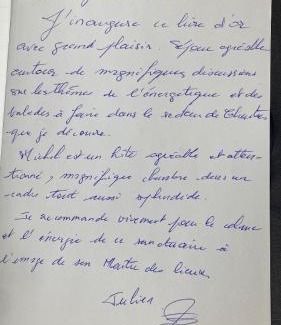 J'inaugure ce livre d'or
avec grand plaisir. Séjour agréable
autour de magnifiques discussions
sur les thème de l'énergétique et des
balades à faire dans le secteur de
que je découvre.
Michel est un hôte agréable et atten-
tionné, magnifique chambre dans un
cadre tout aussi splendide.
Je recommande vivement pour le calme
et l'énergie de ce sanctuaire à
l'image de son Maître des lieux.
Julien